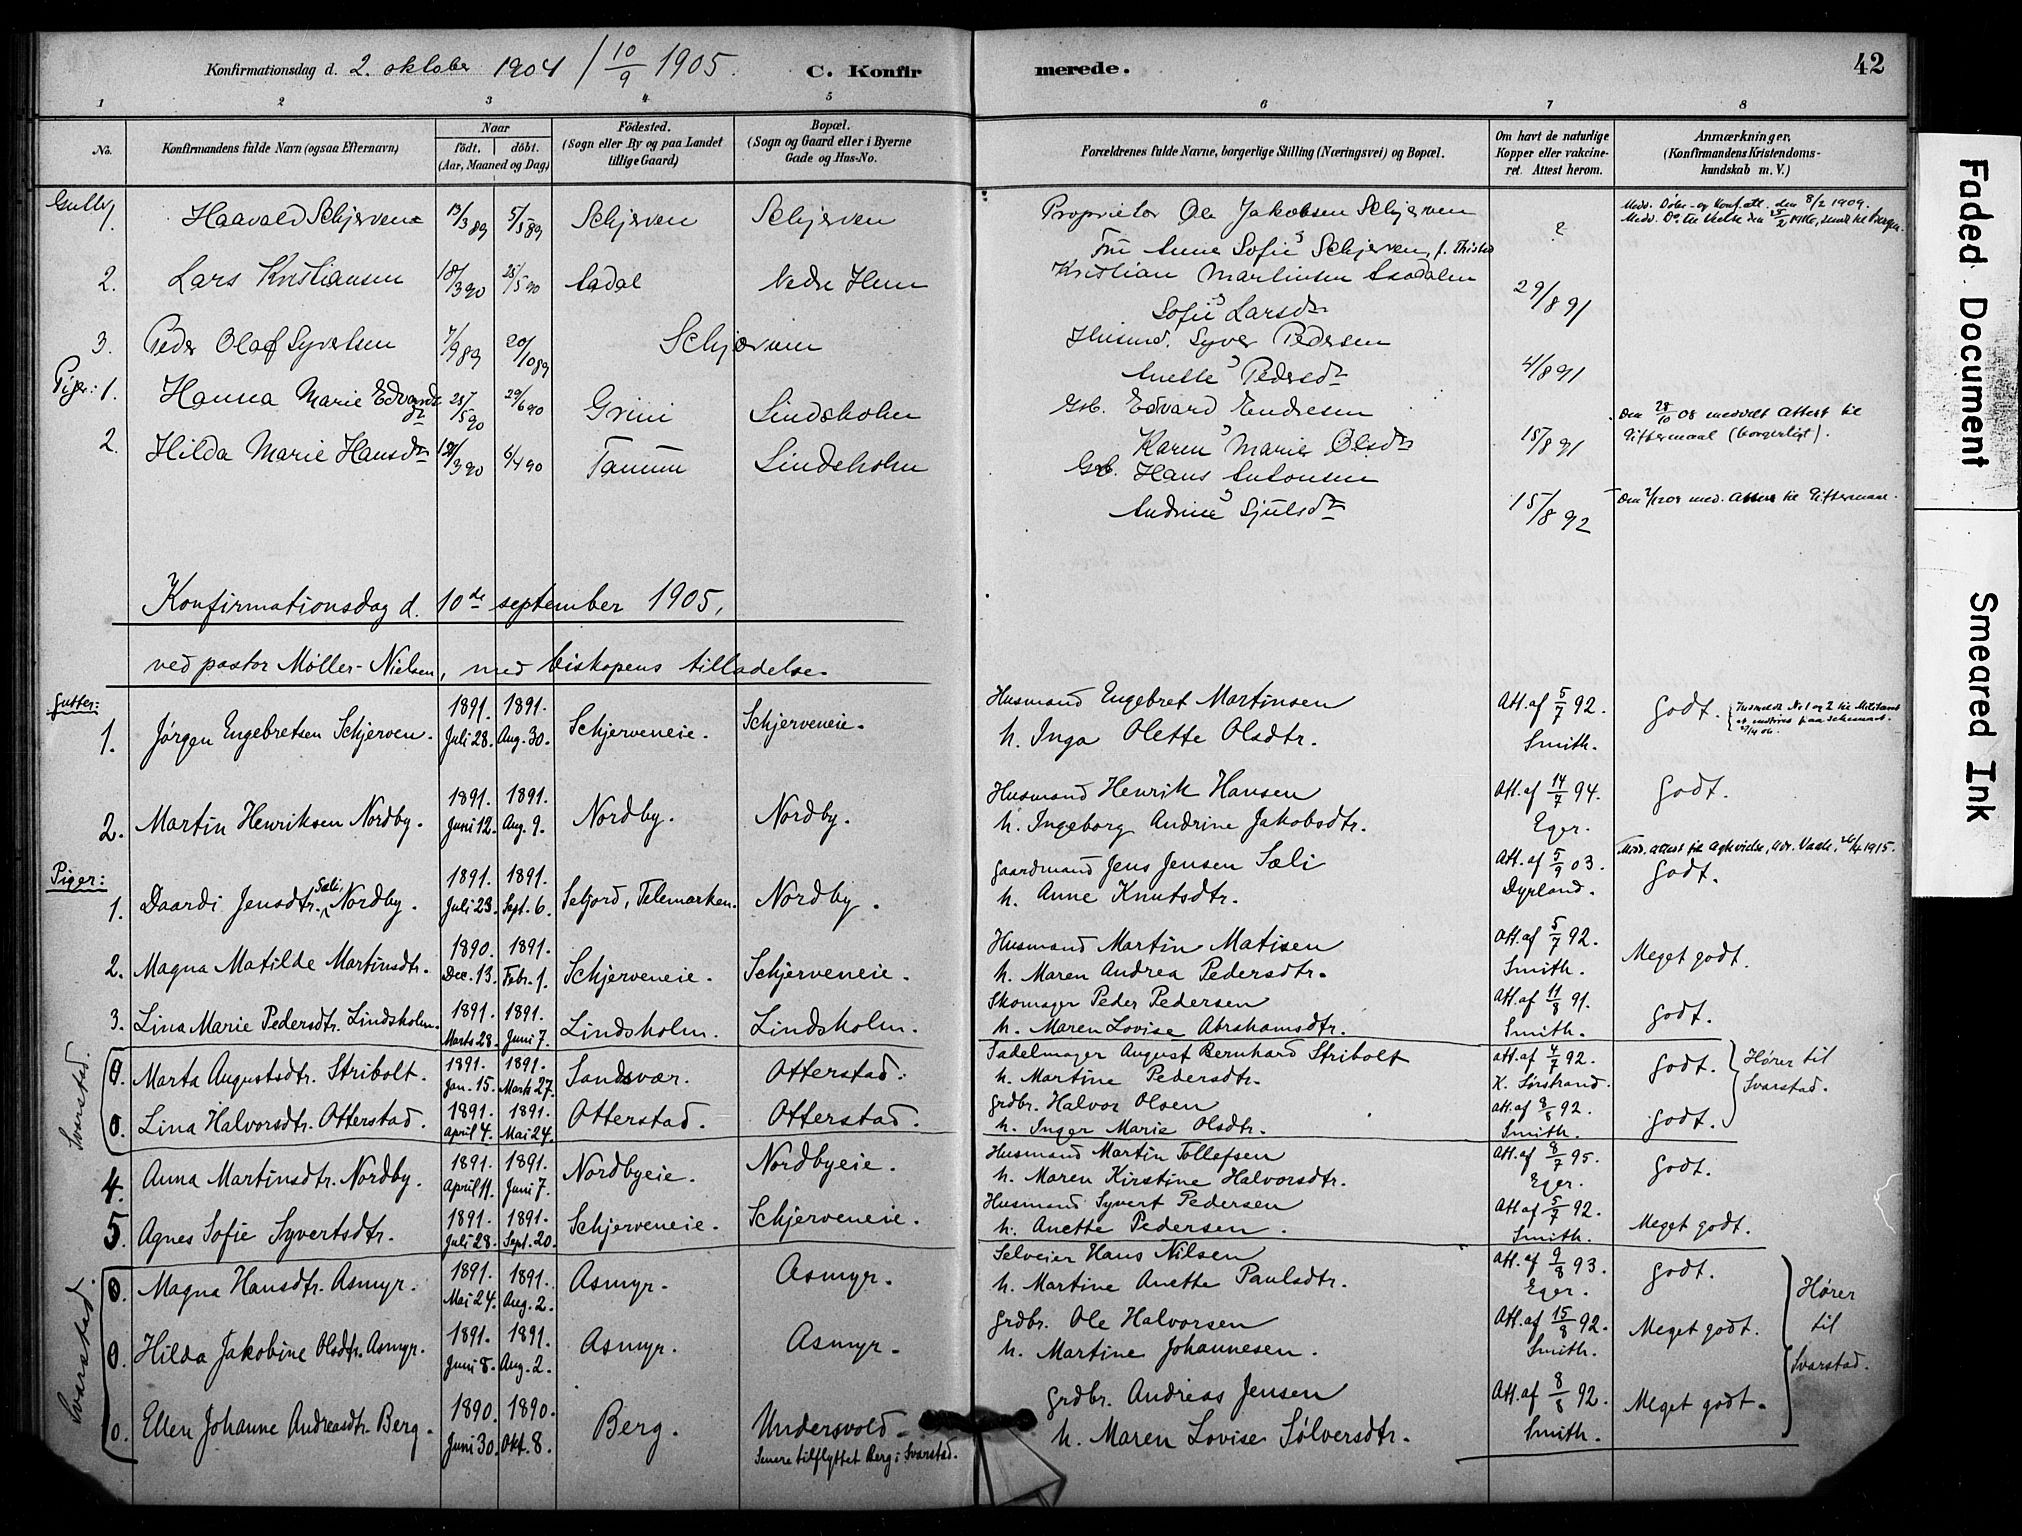 Konfirmationsdag d. 2. oktober 1904 / 10/9 1905. C. Konfirmerede. 42
1 2 3 4 5 6 7 8
No. Konfirmandens fulde Navn (ogsaa Efternavn) Naar födt. döbt. (Aar, Maaned og Dag) Födested. (Sogn eller By og paa Landet tillige Gaard) Bopæl. (Sogn og Gaard eller i Byerne Gade og Hus-No. Forældrenes fulde Navne, borgerlige Stilling (Næringsvei) og Bopæl. Om havt de naturlige Kopper eller vakcineret. Attest herom. Anmærkninger. (Konfirmandens Kristendomskundskab m. V.)
1. Haavald Schjerven 13/3 89 5/5 89 Schjerven Schjerven Proprietær Ole Jakobsen Schjerven ?
Fru Anne Sofie Schjerven
2. Lars Kristiansen 18/3 90 25/5 90 Aadal Nedre Hem Kristian Martinsen Aadalen 29/8 91
Sofie Larsdr
3. Peder Olaf Syvertsen 7/9 89 20/10 89 Schjerven Husmd. Syver Pedersen
Anette Pedersdr 4/8 91
Piger: 1. Hanna Marie Edvardsdr 25/5 90 29/6 90 Grini Lindsholm Grb. Edvard Endresen Den 28/10 08 meddelt Attest til
Karen Marie Olsdr 15/8 91 Giftermaal (borgerligt).
2. Hilda Marie Hansdr 6/4 90 Tanum Lindsholm Grb. Hans Antonsen
Andrine Sjulsdr 15/8 92 med. Attest til Giftermaal.
Konfirmationsdag d. 10de september 1905,
ved pastor Møller-Nielsen, med biskopens tilladelse.
Gutter:
1. Jørgen Engebretsen Schjerven. 1891. Juli 28. 1891. Aug. 30. Schjerveneie. Schjerveneie. Husmand Engebret Martinsen Att. af 5/7 92. Godt.
h. Inga Olette Olsdtr. Smith.
2. Martin Henriksen Nordby. 1891. Juni 12. 1891. Aug. 9. Nordby. Nordby. Husmand Henrik Hansen Att. af 14/7 94. Godt.
h. Ingeborg Andrine Jakobsdtr. Eger.
Piger:
1. Daardi Jensdtr. Sæli, Nordby. 1891. Juli 23. 1891. Sept. 6. Seljord, Telemarken. Nordby. Gaardmand Jens Jensen Sæli Att. af 5/9 03. Godt.
h. Anne Knutsdtr. Dyrland.
2. Magna Matilde Martinsdtr. 1890. Dec. 13. 1891. Febr. 1. Schjerveneie. Schjerveneie. Husmand Martin Matisen Att. af 5/7 92. Meget godt.
h. Maren Andrea Pedersdtr. Smith.
3. Lina Marie Pedersdtr. Lindsholm. 1891. Marts 28. 1891. Juni 7. Lindsholm. Lindsholm. Skomager Peder Pedersen Att. af 11/8 91. Godt.
h. Maren Lovise Abrahamsdtr. Smith.
Svarstad.
0. Marta Augustsdtr. Stribolt. 1891. Jan. 15. 1891. Marts 27. Sandsvær. Otterstad. Sadelmager August Bernhard Stribolt Att. af 4/7 92. Godt. Hører til Svarstad.
h. Martine Pedersdtr. K. Sørstrand.
0. Lina Halvorsdtr. Otterstad. 1891. April 4. 1891. Mai 24. Otterstad. Otterstad. Grdbr. Halvor Olsen Att. af 8/8 92. Godt.
h. Inger Marie Olsdtr. Smith.
4. Anna Martinsdtr. Nordby. 1891. April 11. 1891. Juni 7. Nordbyeie. Nordbyeie. Husmand Martin Tollefsen Att. af 8/7 95. Godt.
h. Maren Kirstine Halvorsdtr. Eger.
5. Agnes Sofie Syvertsdtr. 1891. Juli 28. 1891. Sept. 20. Schjerveneie. Schjerveneie. Husmand Syvert Pedersen Att. af 5/7 92. Meget godt.
h. Anette Pedersen. Smith.
Svarstad.
0. Magna Hansdtr. Asmyr. 1891. Mai 24. 1891. Aug. 2. Asmyr. Asmyr. Selveier Hans Nilsen Att. af 9/8 93. Godt. Hører til Svarstad.
h. Martine Anette Paulsdtr. Eger.
0. Hilda Jakobine Olsdtr. Asmyr. 1891. Juni 8. 1891. Aug. 2. Asmyr. Asmyr. Grdbr. Ole Halvorsen Att. af 15/8 92. Meget godt.
h. Martine Johannesen. Smith.
0. Ellen Johanne Andreasdtr. Berg. 1890. Juni 30. 1890. Okt. 8. Berg. Undersvold. Grdbr. Andreas Jensen Att. af 8/8 92. Meget godt.
Senere tilflyttet Berg i Svarstad. h. Maren Lovise Sølversdtr. Smith.
Faded Document
Smeared Ink